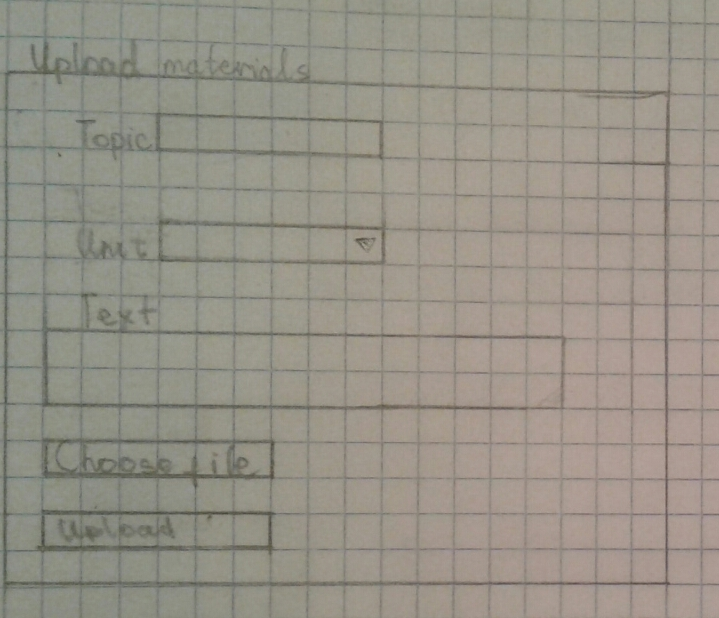 Upload materials
Topic
Unit
Text
Choose file
Upload